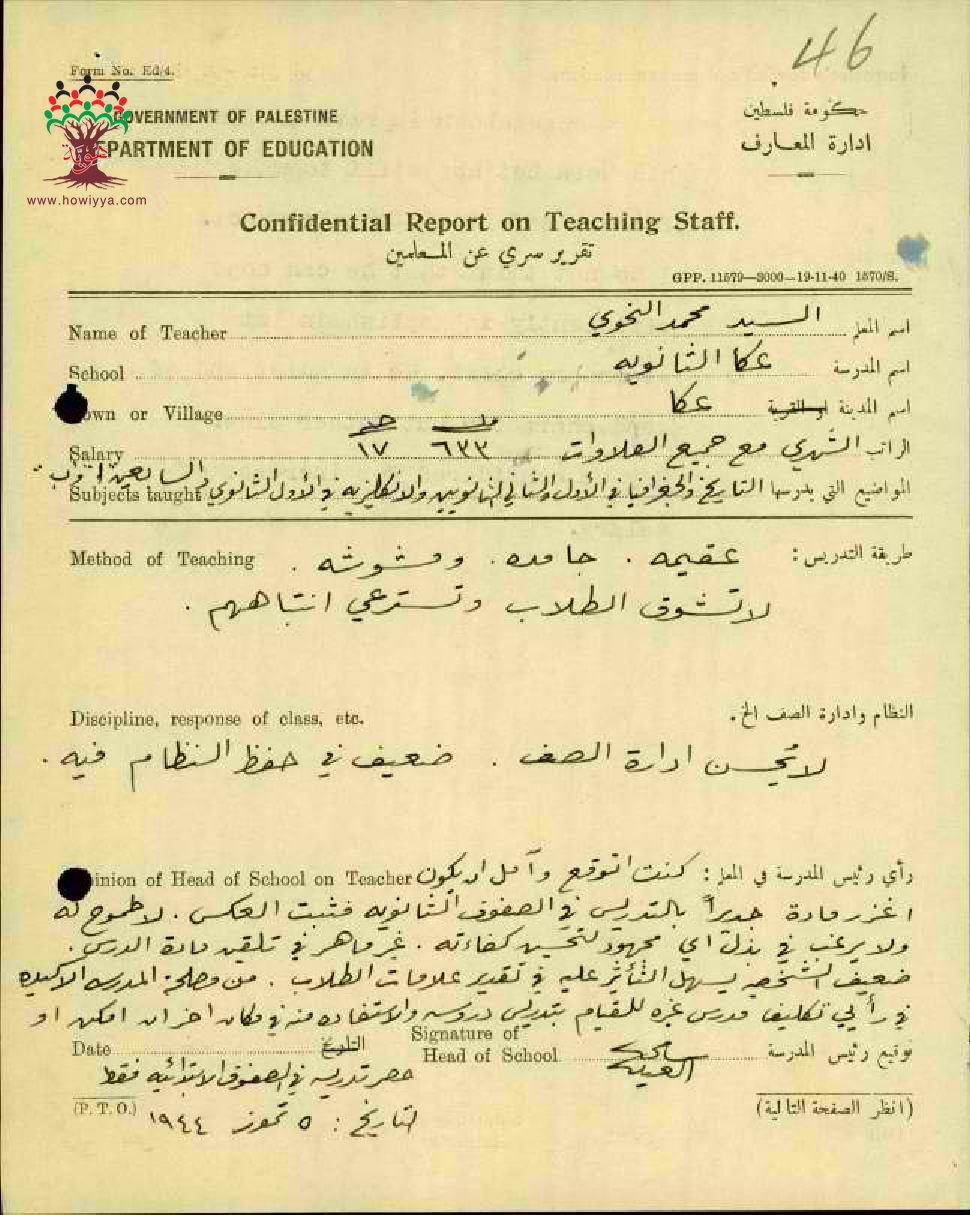 46
Form No. Ed/4.
GOVERNMENT OF PALESTINE
DEPARTMENT OF EDUCATION
حكومة فلسطين
ادارة المعارف
www.howiyya.com
Confidential Report on Teaching Staff.
تقرير سري عن المعلمين
GPP. 11579—3000—19-11-40 1570/S.
Name of Teacher السيد محمد النحوي اسم المعلم
School عكا الثانويه اسم المدرسة
Town or Village عكا اسم المدينة او القرية
Salary الراتب الشهري مع جميع العلاوات ٦٣٣ ١٧
Subjects taught المواضيع التي يدرسها التاريخ والجغرافيا في الأول والثاني الثانويين والانكليزيه في الأول الثانوي والسابعين أ و ب
Method of Teaching طريقة التدريس: عقيمه . جامده . ومشوشه .
لا تشوق الطلاب وتسترعي انتباههم .
Discipline, response of class, etc. النظام وادارة الصف الخ.
لا يحسن ادارة الصف . ضعيف في حفظ النظام فيه .
Opinion of Head of School on Teacher رأي رئيس المدرسة في المعلم: كنت اتوقع وآمل ان يكون
اغزر مادة جديراً بالتدريس في الصفوف الثانويه فثبت العكس . لا طموح له
ولا يرغب في بذل اي مجهود لتحسين كفاءته . غير ماهر في تلقين مادة الدرس .
ضعيف الشخصيه يسهل التأثر عليه في تقدير علامات الطلاب . من مصلحة المدرسه الاكيده
في رأيي تكليف مدرس غيره للقيام بتدريس دروسه والاستفاده منه في مكان اخر ان امكن او
Date التاريخ Signature of Head of School توقيع رئيس المدرسة
حصر تدريسه في الصفوف الابتدائيه فقط
(P. T. O.) التاريخ : ٥ تموز ١٩٤٤ (انظر الصفحة التالية)